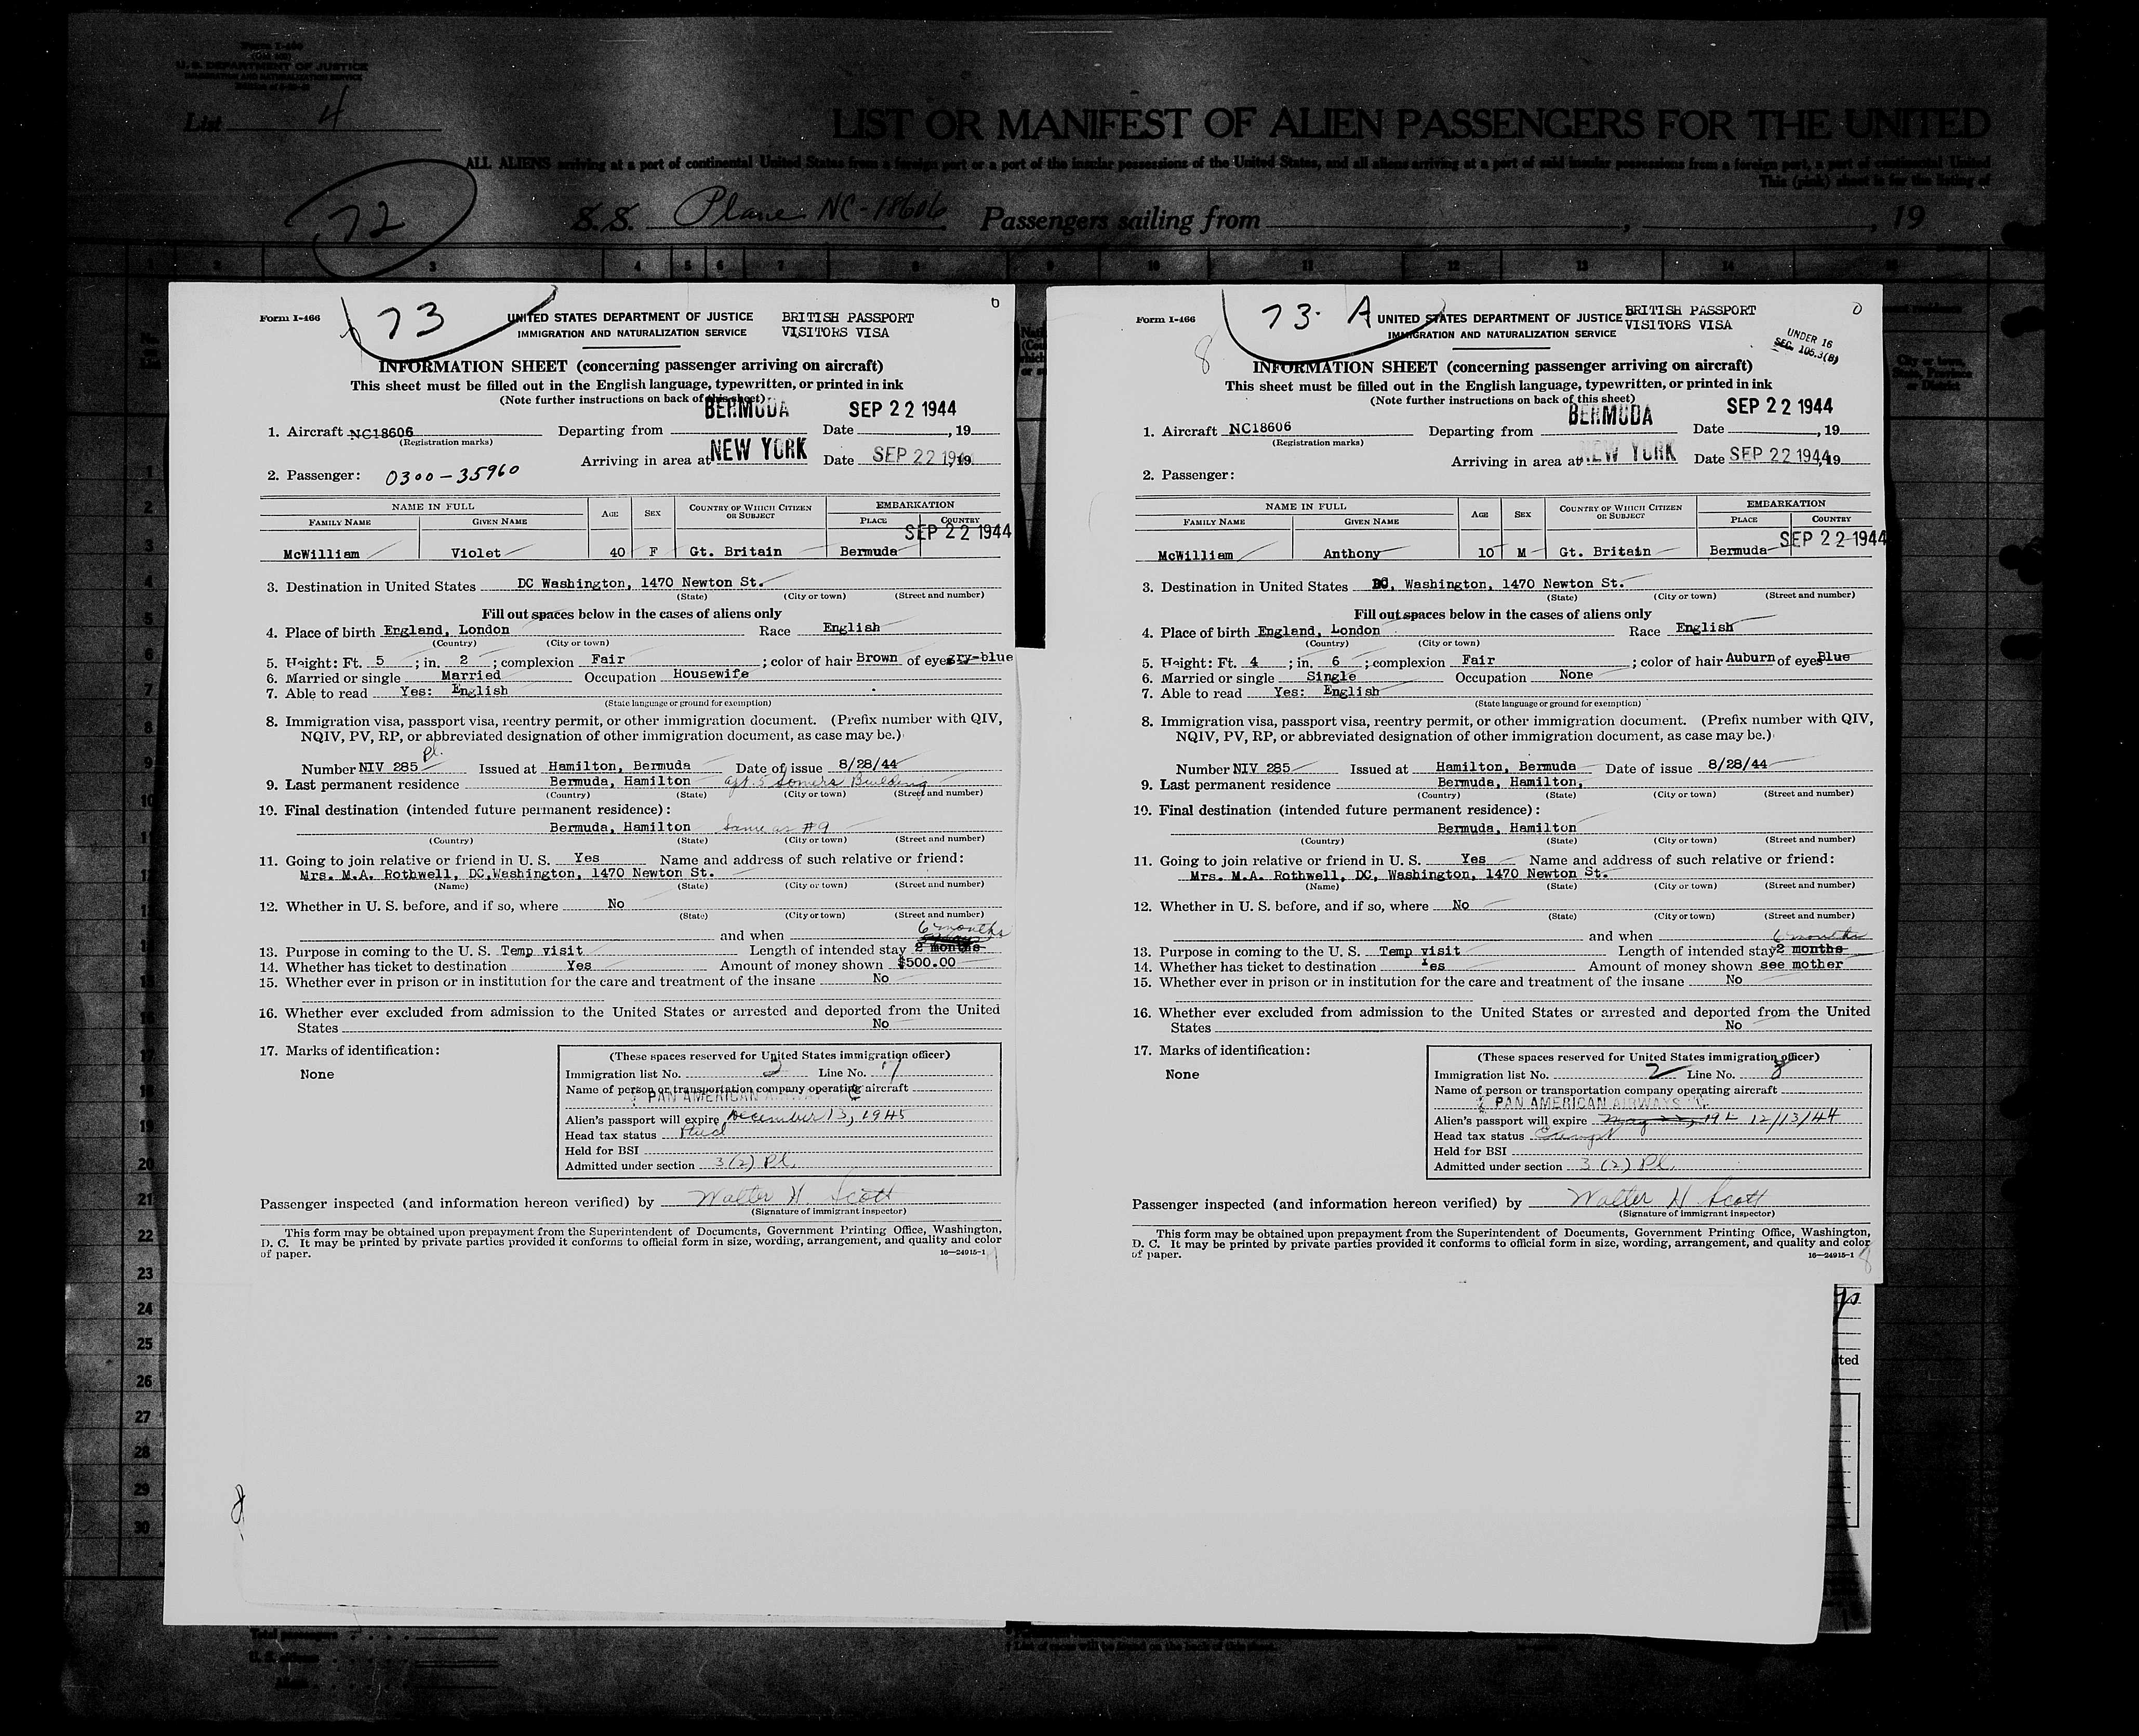 Form I-466
U. S. DEPARTMENT OF JUSTICE
IMMIGRATION AND NATURALIZATION SERVICE
List 4
LIST OR MANIFEST OF ALIEN PASSENGERS FOR THE UNITED
ALL ALIENS arriving at a port of continental United States from a foreign port or a port of the insular possessions of the United States, and all aliens arriving at a port of said insular possessions from a foreign port, a port of continental United
This (pink) sheet is for the listing of
72
S.S. Plane NC-18606 Passengers sailing from , , 19
1 2 3 4 5 6 7 8 9 10 11 12 13 14
73
Form I-466
UNITED STATES DEPARTMENT OF JUSTICE
IMMIGRATION AND NATURALIZATION SERVICE
BRITISH PASSPORT
VISITORS VISA
0
INFORMATION SHEET (concerning passenger arriving on aircraft)
This sheet must be filled out in the English language, typewritten, or printed in ink
(Note further instructions on back of this sheet)
BERMUDA SEP 22 1944
1. Aircraft NC18606 Departing from Date , 19
(Registration marks)
Arriving in area at NEW YORK Date SEP 22 194 , 19
2. Passenger: 0300-35960
NAME IN FULL AGE SEX COUNTRY OF WHICH CITIZEN OR SUBJECT EMBARKATION
FAMILY NAME GIVEN NAME PLACE COUNTRY
SEP 22 1944
McWilliam Violet 40 F Gt. Britain Bermuda
3. Destination in United States DC Washington, 1470 Newton St.
(State) (City or town) (Street and number)
Fill out spaces below in the cases of aliens only
4. Place of birth England, London Race English
(Country) (City or town)
5. Height: Ft. 5 ; in. 2 ; complexion Fair ; color of hair Brown of eyes gry-blue
6. Married or single Married Occupation Housewife
7. Able to read Yes: English
(State language or ground for exemption)
8. Immigration visa, passport visa, reentry permit, or other immigration document. (Prefix number with QIV,
NQIV, PV, RP, or abbreviated designation of other immigration document, as case may be.)
Pl.
Number NIV 285 Issued at Hamilton, Bermuda Date of issue 8/28/44
9. Last permanent residence Bermuda, Hamilton apt. 5 Somers Building
(Country) (State) (City or town) (Street and number)
10. Final destination (intended future permanent residence):
Bermuda, Hamilton Same as #9
(Country) (State) (City or town) (Street and number)
11. Going to join relative or friend in U. S. Yes Name and address of such relative or friend:
Mrs. M.A. Rothwell, DC,Washington, 1470 Newton St.
(Name) (State) (City or town) (Street and number)
12. Whether in U. S. before, and if so, where No
(State) (City or town) (Street and number)
and when 6 months
13. Purpose in coming to the U. S. Temp visit Length of intended stay 2 months
14. Whether has ticket to destination Yes Amount of money shown $500.00
15. Whether ever in prison or in institution for the care and treatment of the insane No
16. Whether ever excluded from admission to the United States or arrested and deported from the United
States No
17. Marks of identification:
None
(These spaces reserved for United States immigration officer)
Immigration list No. 2 Line No. 7
Name of person or transportation company operating aircraft
PAN AMERICAN AIRWAYS
Alien's passport will expire December 13, 1945
Head tax status Paid
Held for BSI
Admitted under section 3(2) Pl.
Passenger inspected (and information hereon verified) by Walter H. Scott
(Signature of immigrant inspector)
This form may be obtained upon prepayment from the Superintendent of Documents, Government Printing Office, Washington,
D. C. It may be printed by private parties provided it conforms to official form in size, wording, arrangement, and quality and color
of paper. 16—24915-1
73. A
8
Form I-466
UNITED STATES DEPARTMENT OF JUSTICE
IMMIGRATION AND NATURALIZATION SERVICE
BRITISH PASSPORT
VISITORS VISA
0
UNDER 16
SEC. 105.3(B)
INFORMATION SHEET (concerning passenger arriving on aircraft)
This sheet must be filled out in the English language, typewritten, or printed in ink
(Note further instructions on back of this sheet)
BERMUDA SEP 22 1944
1. Aircraft NC18606 Departing from Date , 19
(Registration marks)
Arriving in area at NEW YORK Date SEP 22 1944, 19
2. Passenger:
NAME IN FULL AGE SEX COUNTRY OF WHICH CITIZEN OR SUBJECT EMBARKATION
FAMILY NAME GIVEN NAME PLACE COUNTRY
SEP 22 1944
McWilliam Anthony 10 M Gt. Britain Bermuda
3. Destination in United States DC, Washington, 1470 Newton St.
(State) (City or town) (Street and number)
Fill out spaces below in the cases of aliens only
4. Place of birth England, London Race English
(Country) (City or town)
5. Height: Ft. 4 ; in. 6 ; complexion Fair ; color of hair Auburn of eyes Blue
6. Married or single Single Occupation None
7. Able to read Yes: English
(State language or ground for exemption)
8. Immigration visa, passport visa, reentry permit, or other immigration document. (Prefix number with QIV,
NQIV, PV, RP, or abbreviated designation of other immigration document, as case may be.)
Number NIV 285 Issued at Hamilton, Bermuda Date of issue 8/28/44
9. Last permanent residence Bermuda, Hamilton,
(Country) (State) (City or town) (Street and number)
10. Final destination (intended future permanent residence):
Bermuda, Hamilton
(Country) (State) (City or town) (Street and number)
11. Going to join relative or friend in U. S. Yes Name and address of such relative or friend:
Mrs. M.A. Rothwell, DC, Washington, 1470 Newton St.
(Name) (State) (City or town) (Street and number)
12. Whether in U. S. before, and if so, where No
(State) (City or town) (Street and number)
and when 6 months
13. Purpose in coming to the U. S. Temp visit Length of intended stay 2 months
14. Whether has ticket to destination Yes Amount of money shown see mother
15. Whether ever in prison or in institution for the care and treatment of the insane No
16. Whether ever excluded from admission to the United States or arrested and deported from the United
States No
17. Marks of identification:
None
(These spaces reserved for United States immigration officer)
Immigration list No. 2 Line No. 8
Name of person or transportation company operating aircraft
PAN AMERICAN AIRWAYS
Alien's passport will expire 12/13/44
Head tax status Exempt
Held for BSI
Admitted under section 3(2) Pl.
Passenger inspected (and information hereon verified) by Walter H Scott
(Signature of immigrant inspector)
This form may be obtained upon prepayment from the Superintendent of Documents, Government Printing Office, Washington,
D. C. It may be printed by private parties provided it conforms to official form in size, wording, arrangement, and quality and color
of paper. 16—24915-1
8
1
2
3
4
5
6
7
8
9
10
11
17
19
20
21
22
23
24
25
26
27
28
29
30
ted
Total passengers